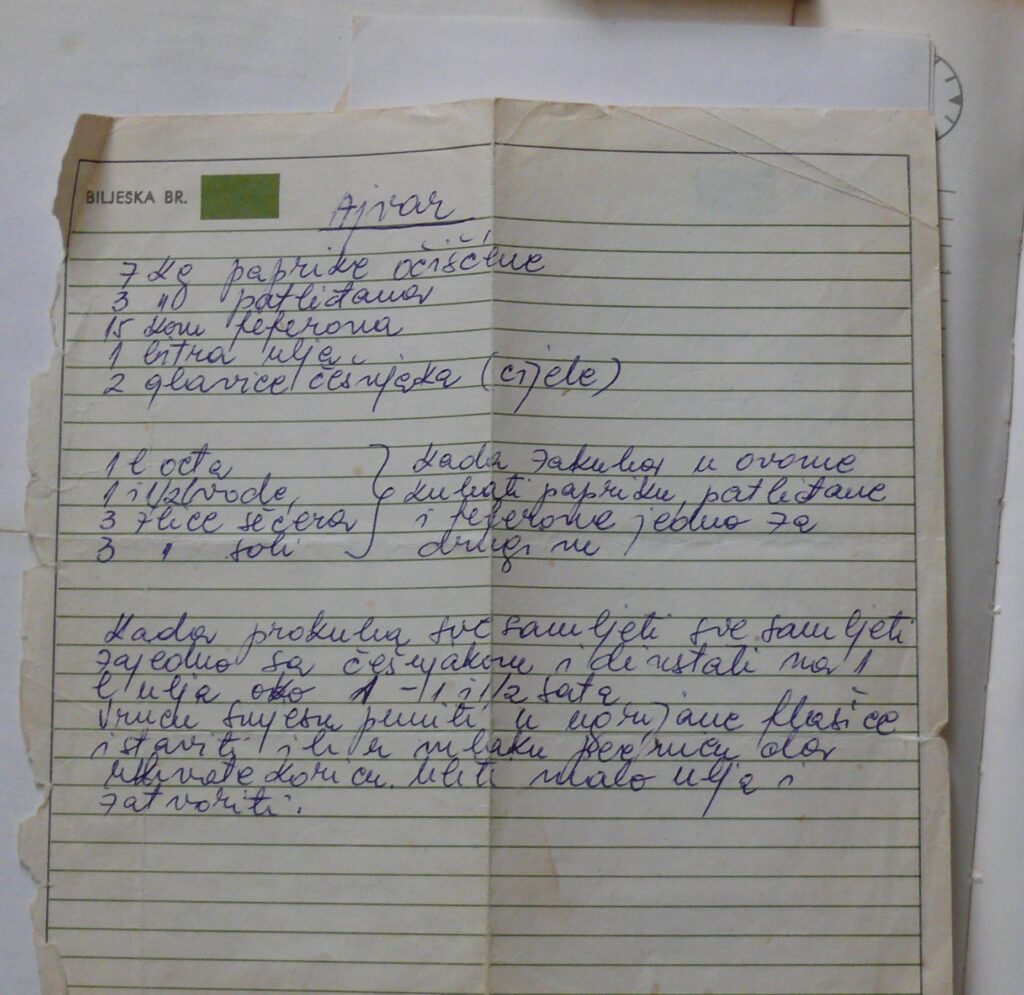 BILJEŠKA BR.
Ajvar
7 kg paprike očišćene
3 " patliđana
15 kom feferona
1 litra ulja
2 glavice češnjaka (cijele)
1 l octa
1 i 1/2 l vode
3 žlice šećera
3 " soli
kada zakuha u ovome
kuhati papriku, patliđane
i feferone jedno za
drugim
Kada prokuha sve samljeti sve samljeti
zajedno sa češnjakom i dinstati na 1
l ulja oko 1 - 1 i 1/2 sata
Vruću smjesu puniti u ugrijane flašice
i staviti ih u mlaku pećnicu da
uhvate koricu. Uliti malo ulja i
zatvoriti.